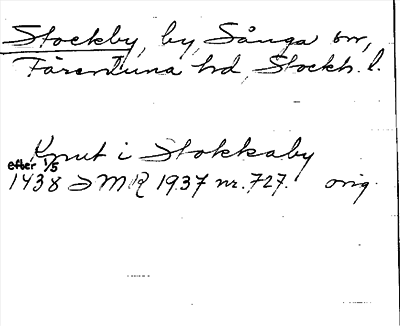 Stockby, by, Sånga sn,
Färentuna hd, Stockh. l.
Knut i Stokkaby
efter 1/5
1438 SMR 1937 nr. 727. orig.